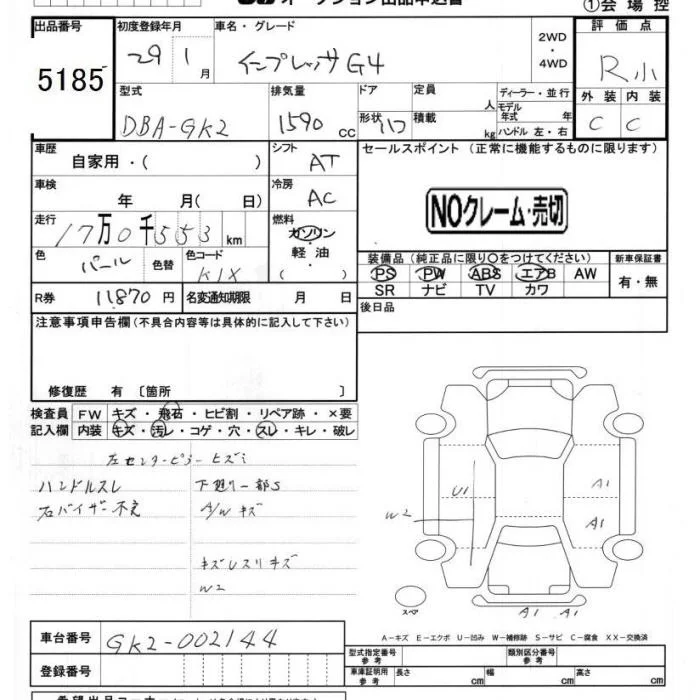 オークション出品申込書
①会場控
出品番号 5185
初度登録年月 29 1月
車名・グレード インプレッサG4
2WD・4WD
評価点 R小
外装 C 内装 C
型式 DBA-GK2
排気量 1590 cc
ドア 形状
定員 人 積載 kg
ディーラー・並行
モデル年式 年式
ハンドル 左・右
車歴 自家用・( )
シフト AT
セールスポイント(正常に機能するものに限ります)
NOクレーム・売切
車検 年 月( 日)
冷房 AC
走行 17万0千553 km
燃料 ガソリン 軽油 ( )
色 パール 色替 色コード K1X
装備品(純正品に限り〇をつけてください)
PS PW ABS エアB AW
SR ナビ TV カワ
新車保証書 有・無
R券 11870円 名変通知期限 月 日
後日品
注意事項申告欄(不具合内容等は具体的に記入して下さい)
修復歴 有〔箇所 〕
検査員記入欄
FW キズ・飛石・ヒビ割・リペア跡・×要
内装 キズ・汚レ・コゲ・穴・スレ・キレ・破レ
左センターピラーヒズミ
ハンドルスレ 下廻り一部S
右バイザー不良 A/Wキズ
W2
U1
W2
A1
A1
A1 A1
スペア
A-キズ E-エクボ U-凹み W-補修跡 S-サビ C-腐食 XX-交換済
車台番号 GK2-002144
登録番号
型式指定番号 参考
類別区分番号 参考
車庫証明用 参考 長さ cm 幅 cm 高さ cm